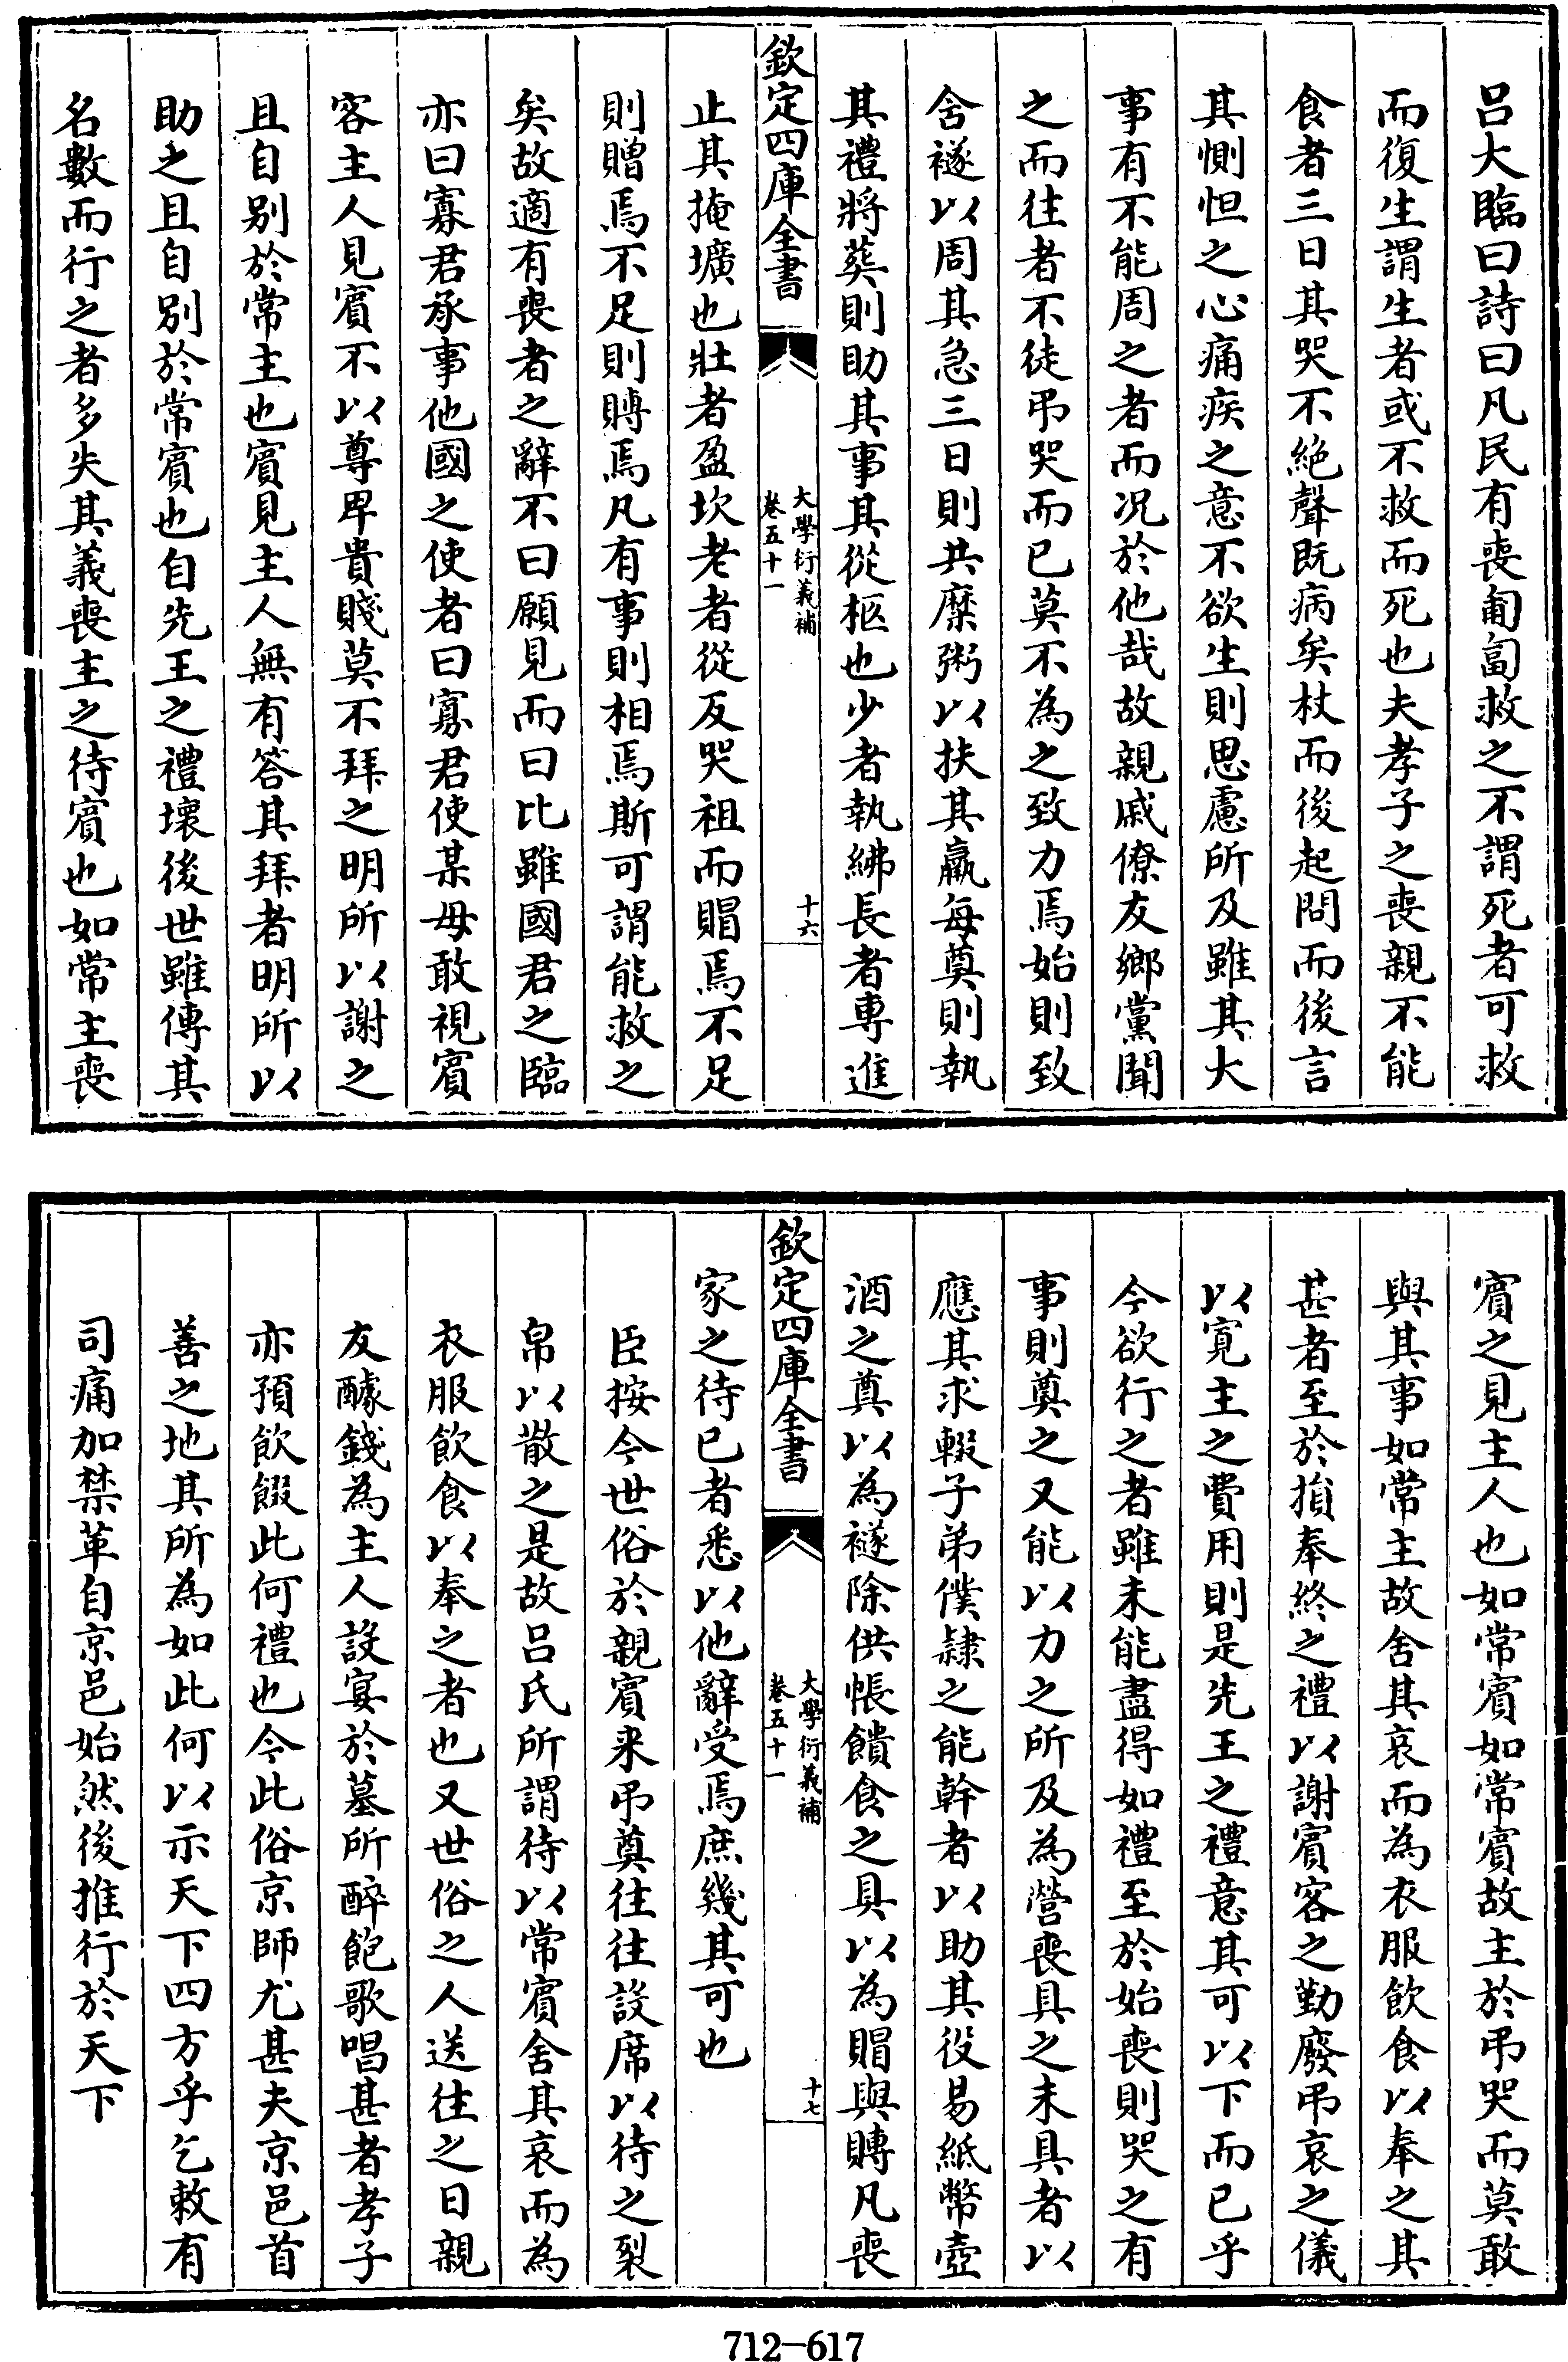 呂大臨曰詩曰凡民有喪匍匐救之不謂死者可救
而復生謂生者或不救而死也夫孝子之喪親不能
食者三日其哭不絶聲既病矣杖而後起問而後言
其惻怛之心痛疾之意不欲生則思慮所及雖其大
事有不能周之者而况於他哉故親戚僚友鄉黨聞
之而往者不徒弔哭而已莫不為之致力焉始則致
含襚以周其急三日則共糜粥以扶其羸每奠則執
其禮將葬則助其事其從柩也少者執紼長者專進
欽定四庫全書
大學衍義補
卷五十一
十六
止其掩壙也壯者盈坎老者從反哭祖而賵焉不足
則贈焉不足則賻焉凡有事則相焉斯可謂能救之
矣故適有喪者之辭不曰願見而曰比雖國君之臨
亦曰寡君承事他國之使者曰寡君使某毋敢視賓
客主人見賓不以尊卑貴賤莫不拜之明所以謝之
且自别於常主也賓見主人無有答其拜者明所以
助之且自别於常賓也自先王之禮壞後世雖傳其
名數而行之者多失其義喪主之待賓也如常主喪
賓之見主人也如常賓如常賓故主於弔哭而莫敢
與其事如常主故舍其哀而為衣服飲食以奉之其
甚者至於損奉終之禮以謝賓客之勤廢弔哀之儀
以寛主之費用則是先王之禮意其可以下而已乎
今欲行之者雖未能盡得如禮至於始喪則哭之有
事則奠之又能以力之所及為營喪具之未具者以
應其求輟子弟僕隷之能幹者以助其役易紙幣壺
酒之奠以為襚除供帳饋食之具以為賵與賻凡喪
欽定四庫全書
大學衍義補
卷五十一
十七
家之待已者悉以他辭受焉庶幾其可也
臣按今世俗於親賓来弔奠往往設席以待之裂
帛以散之是故呂氏所謂待以常賓舍其哀而為
衣服飲食以奉之者也又世俗之人送往之日親
友醵錢為主人設宴於墓所醉飽歌唱甚者孝子
亦預飲餟此何禮也今此俗京師尤甚夫京邑首
善之地其所為如此何以示天下四方乎乞敕有
司痛加禁革自京邑始然後推行於天下
712-617